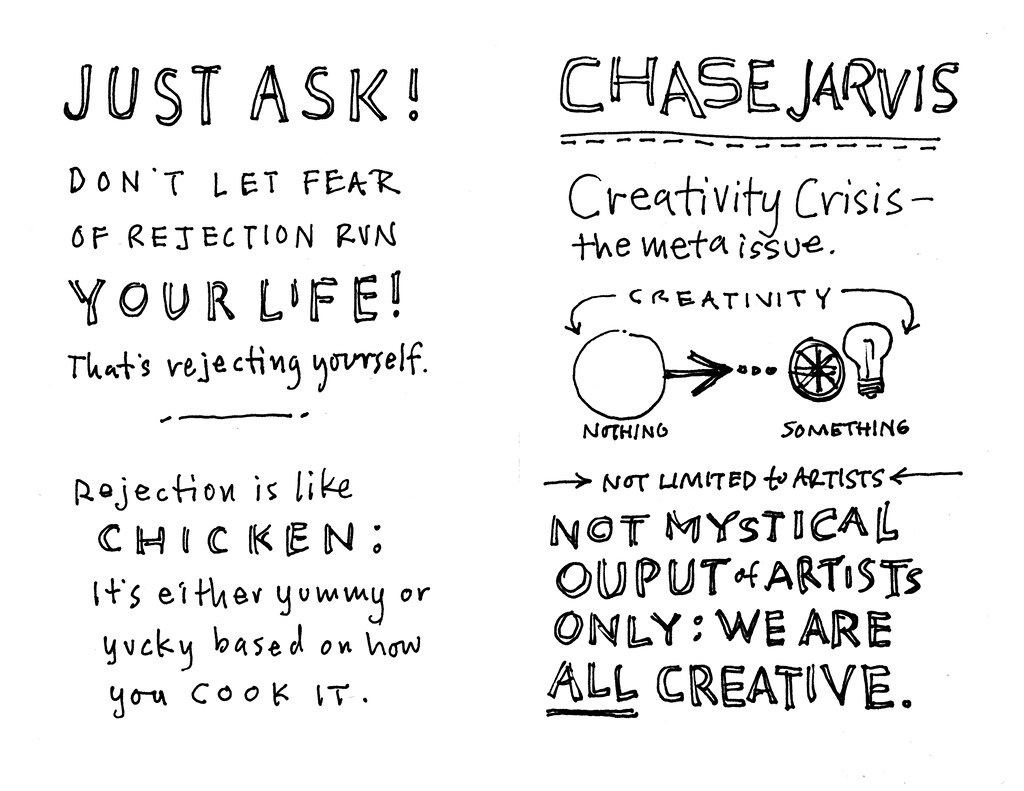 JUST ASK!
DON'T LET FEAR
OF REJECTION RUN
YOUR LIFE!
That's rejecting yourself.
Rejection is like
CHICKEN:
It's either yummy or
yucky based on how
you COOK IT.
CHASE JARVIS
Creativity Crisis—
the meta issue.
CREATIVITY
NOTHING
SOMETHING
NOT LIMITED to ARTISTS
NOT MYSTICAL
OUPUT of ARTISTS
ONLY: WE ARE
ALL CREATIVE.